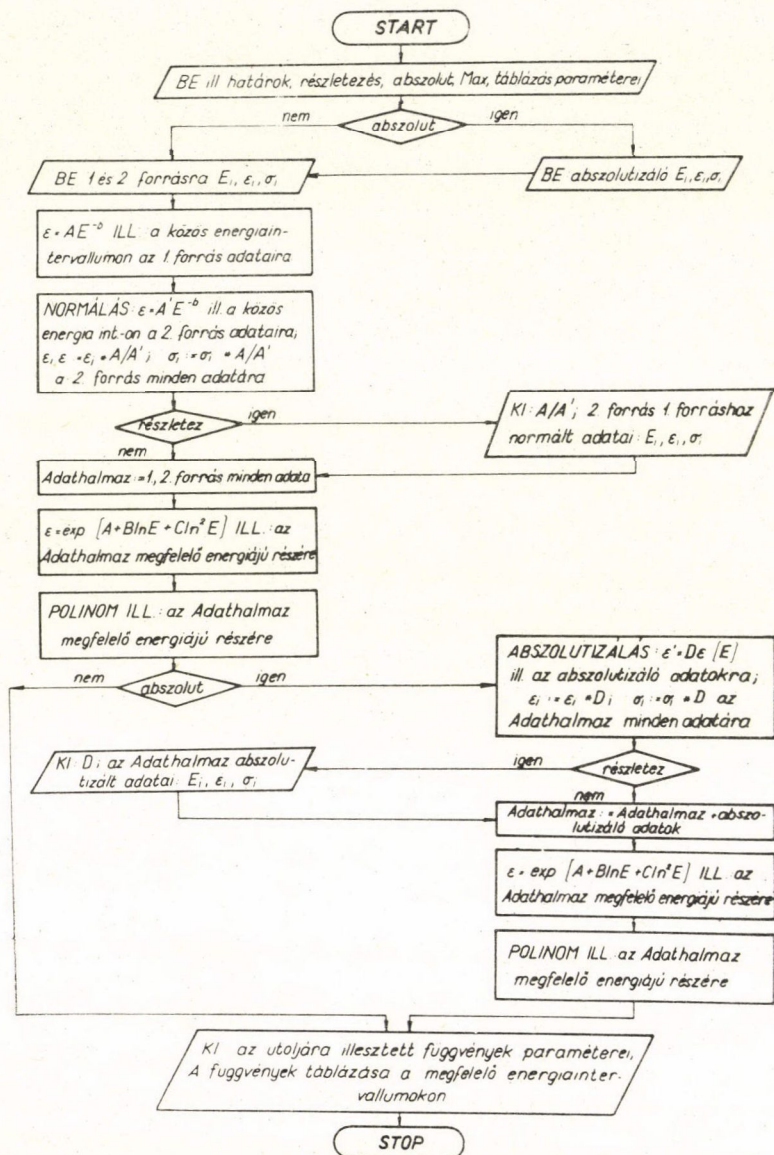 START
BE ill határok, részletezés, abszolut, Max, táblázás paraméterei
nem
igen
abszolut
BE 1 és 2 forrásra Ei, εi, σi
BE abszolutizáló Ei, εi, σi
ε = AE⁻ᵇ ILL. a közös energiain-
tervallumon az 1. forrás adataira
NORMÁLÁS: ε = A'E⁻ᵇ ill. a közös
energia int.-on a 2. forrás adataira;
εi, ε = εi * A/A'; σi := σi * A/A'
a 2. forrás minden adatára
részletez
igen
nem
KI: A/A'; 2. forrás 1. forráshoz
normált adatai: Ei, εi, σi
Adathalmaz := 1., 2. forrás minden adata
ε = exp [A+BlnE+Cln²E] ILL.: az
Adathalmaz megfelelő energiájú részére
POLINOM ILL.: az Adathalmaz
megfelelő energiájú részére
nem
abszolut
igen
ABSZOLUTIZÁLÁS: ε' = Dε [E]
ill. az abszolutizáló adatokra;
εi := εi * D; σi := σi * D az
Adathalmaz minden adatára
igen
részletez
nem
KI: D; az Adathalmaz abszolu-
tizált adatai: Ei, εi, σi
Adathalmaz := Adathalmaz + abszo-
lutizáló adatok
ε = exp [A+BlnE+Cln²E] ILL. az
Adathalmaz megfelelő energiájú részére
POLINOM ILL. az Adathalmaz
megfelelő energiájú részére
KI az utoljára illesztett függvények paraméterei,
A függvények táblázása a megfelelő energiainter-
vallumokon
STOP